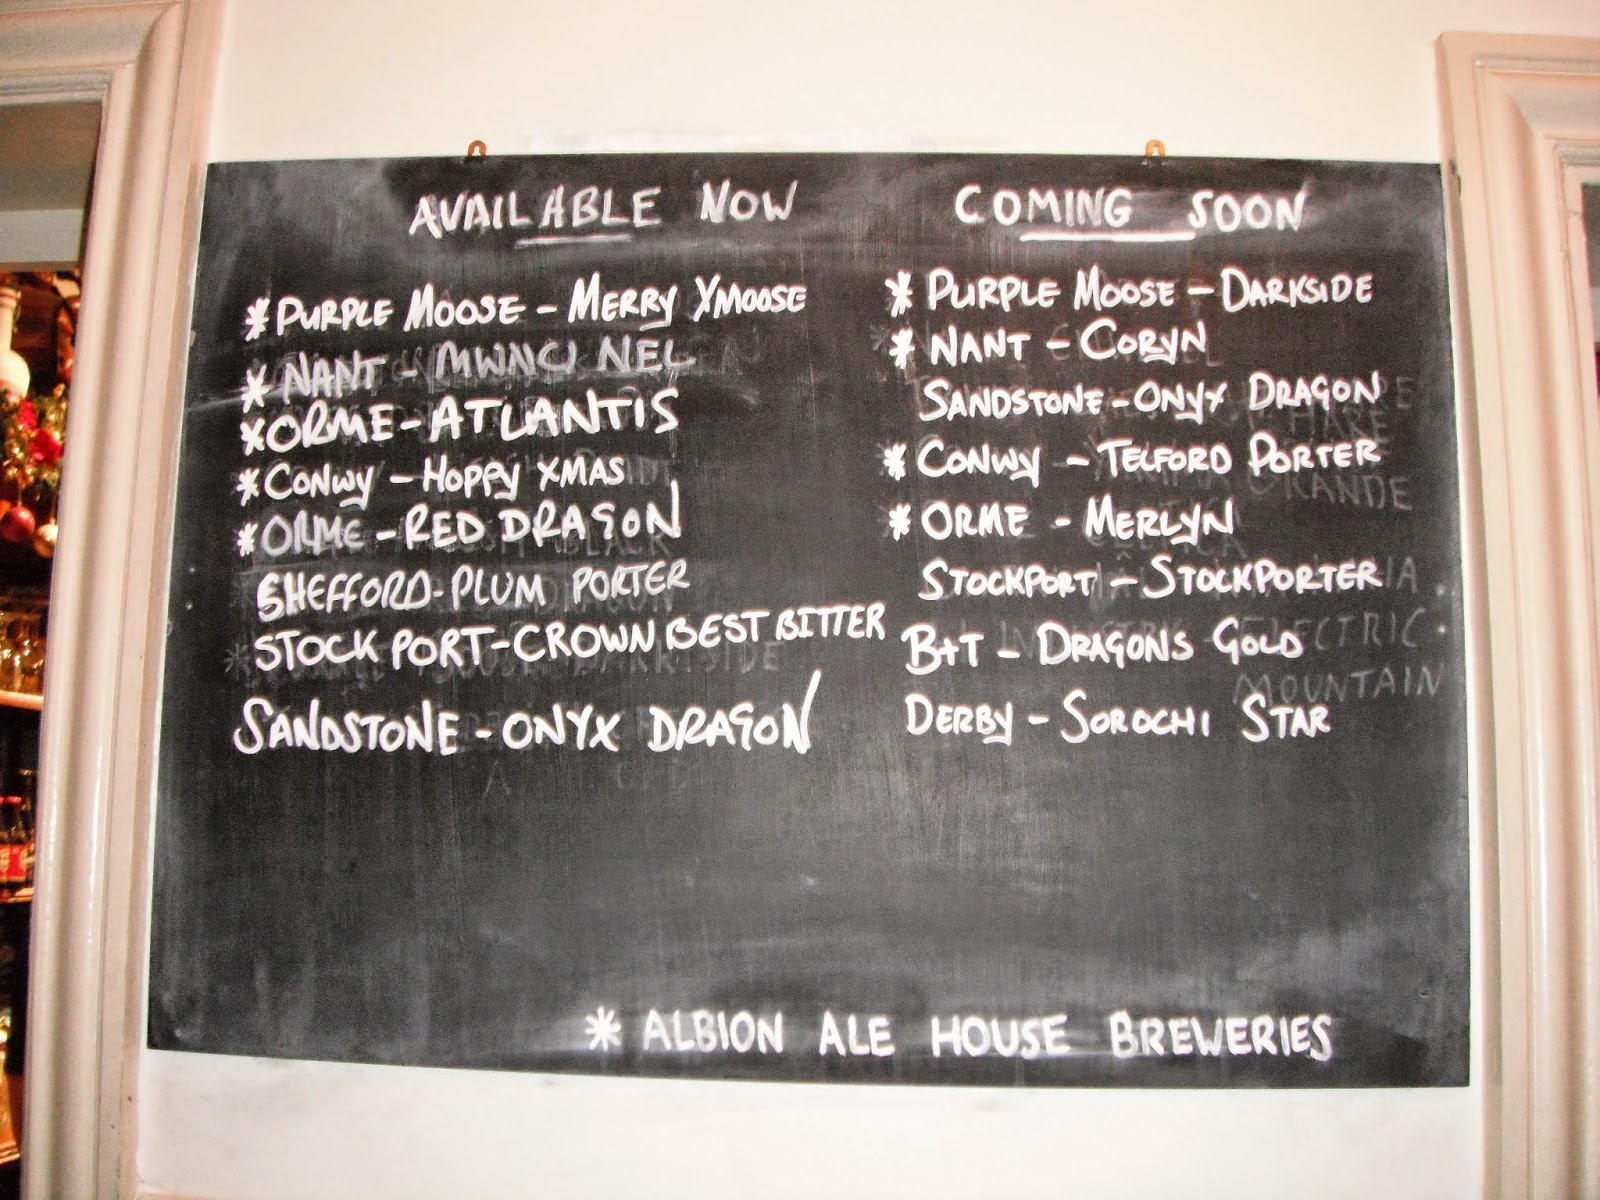 AVAILABLE NOW
* PURPLE MOOSE - MERRY XMOOSE
* NANT - MWNCI NEL
* ORME - ATLANTIS
* CONWY - HOPPY XMAS
* ORME - RED DRAGON
SHEFFORD - PLUM PORTER
STOCKPORT - CROWN BEST BITTER
SANDSTONE - ONYX DRAGON
COMING SOON
* PURPLE MOOSE - DARKSIDE
* NANT - CORYN
SANDSTONE - ONYX DRAGON
* CONWY - TELFORD PORTER
* ORME - MERLYN
STOCKPORT - STOCKPORTER
B+T - DRAGONS GOLD
DERBY - SOROCHI STAR
* ALBION ALE HOUSE BREWERIES
ELECTRIC
MOUNTAIN